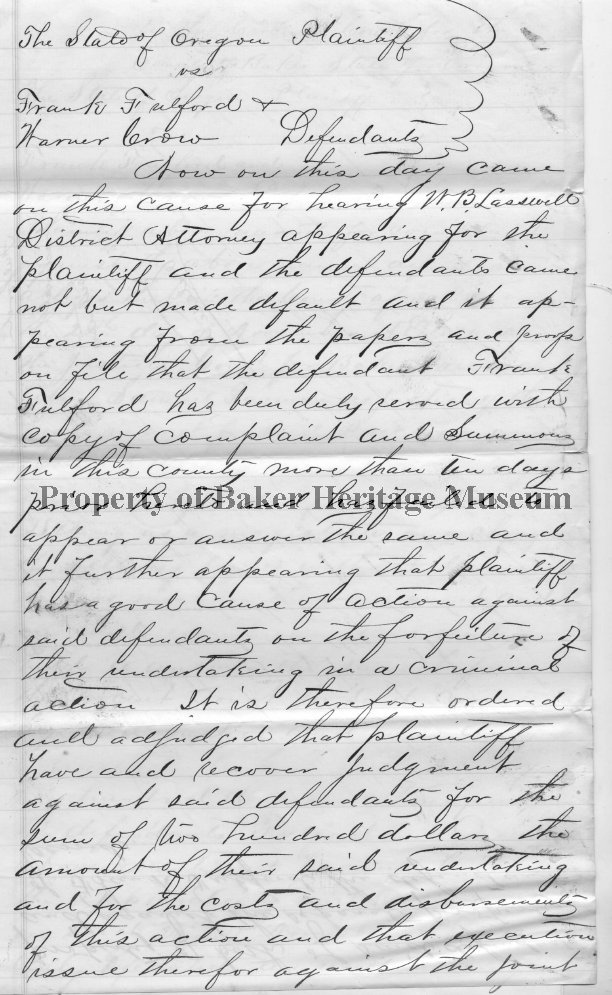 The State of Oregon Plaintiff
vs
Frank Fulford &
Warner Crow Defendants
Now on this day came
on this cause for hearing W. B. Lasswell
District Attorney appearing for the
plaintiff and the defendants came
not but made default and it ap-
pearing from the papers and proofs
on file that the defendant Frank
Fulford has been duly served with
copy of complaint and Summons
in this county more than ten days
prior thereto and has failed to
Property of Baker Heritage Museum
appear or answer the same and
it further appearing that plaintiff
has a good cause of action against
said defendants on the forfeiture of
their undertaking in a criminal
action It is therefore ordered
and adjudged that plaintiff
have and recover judgment
against said defendants for the
sum of two hundred dollars the
amount of their said undertaking
and for the costs and disbursements
of this action and that execution
issue therefor against the joint